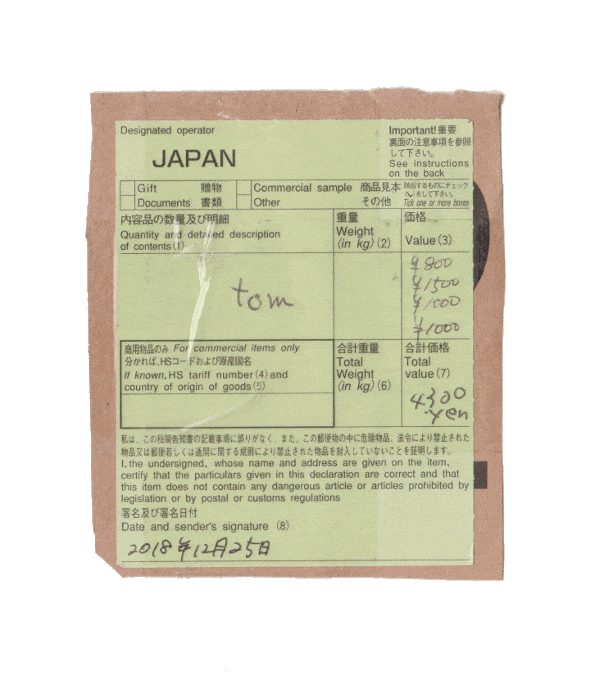 Designated operator
JAPAN
Important! 重要
裏面の注意事項を参照
して下さい。
See instructions
on the back
Gift 贈物
Commercial sample 商品見本
該当するものにチェック
(✓)をして下さい。
Documents 書類
Other その他
Tick one or more boxes
内容品の数量及び明細
Quantity and detailed description
of contents(1)
重量
Weight
(in kg) (2)
価格
Value (3)
tom
¥800
¥1500
¥1000
¥1000
商用物品のみ For commercial items only
分かれば、HSコードおよび原産国名
If known, HS tariff number (4) and
country of origin of goods (5)
合計重量
Total
Weight
(in kg) (6)
合計価格
Total
value (7)
4300
yen
私は、この税関告知書の記載事項に誤りがなく、また、この郵便物の中に危険物品、法令により禁止された
物品又は郵便若しくは通関に関する規則により禁止された物品を封入していないことを証明します。
I, the undersigned, whose name and address are given on the item,
certify that the particulars given in this declaration are correct and that
this item does not contain any dangerous article or articles prohibited by
legislation or by postal or customs regulations
署名及び署名日付
Date and sender's signature (8)
2018年12月25日